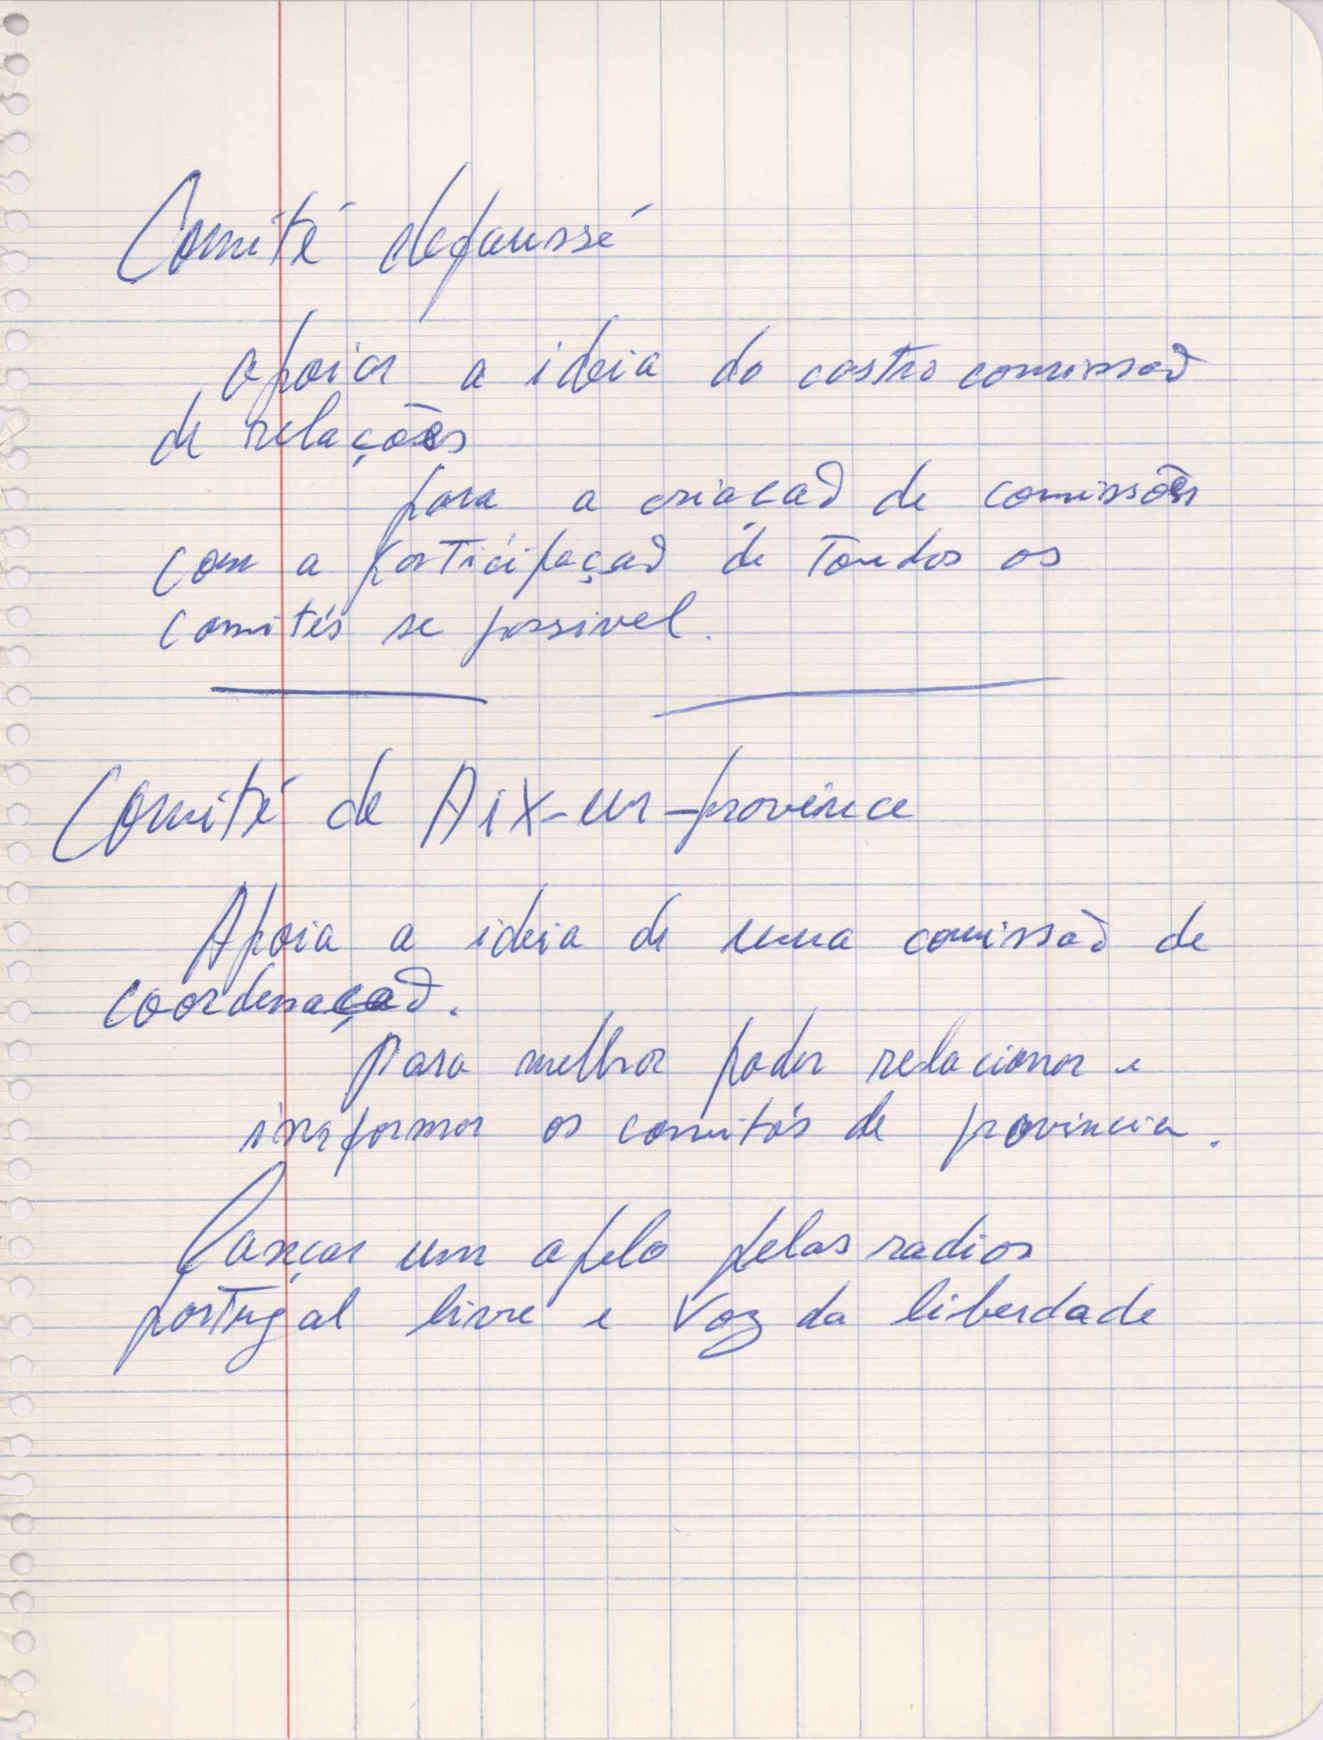 Comité defaussé
apoiar a ideia do castro comissaõ
de relações
para a criacaõ de comissões
com a participaçaõ de Toudos os
comités se possivel.
Comité de Aix-en-province
Apoia a ideia de uma comissaõ de
coordenaçaõ.
para melhor poder relacionar e
informar os comités de provincia.
Lançar um apelo pelas radios
portugal livre e Voz da liberdade